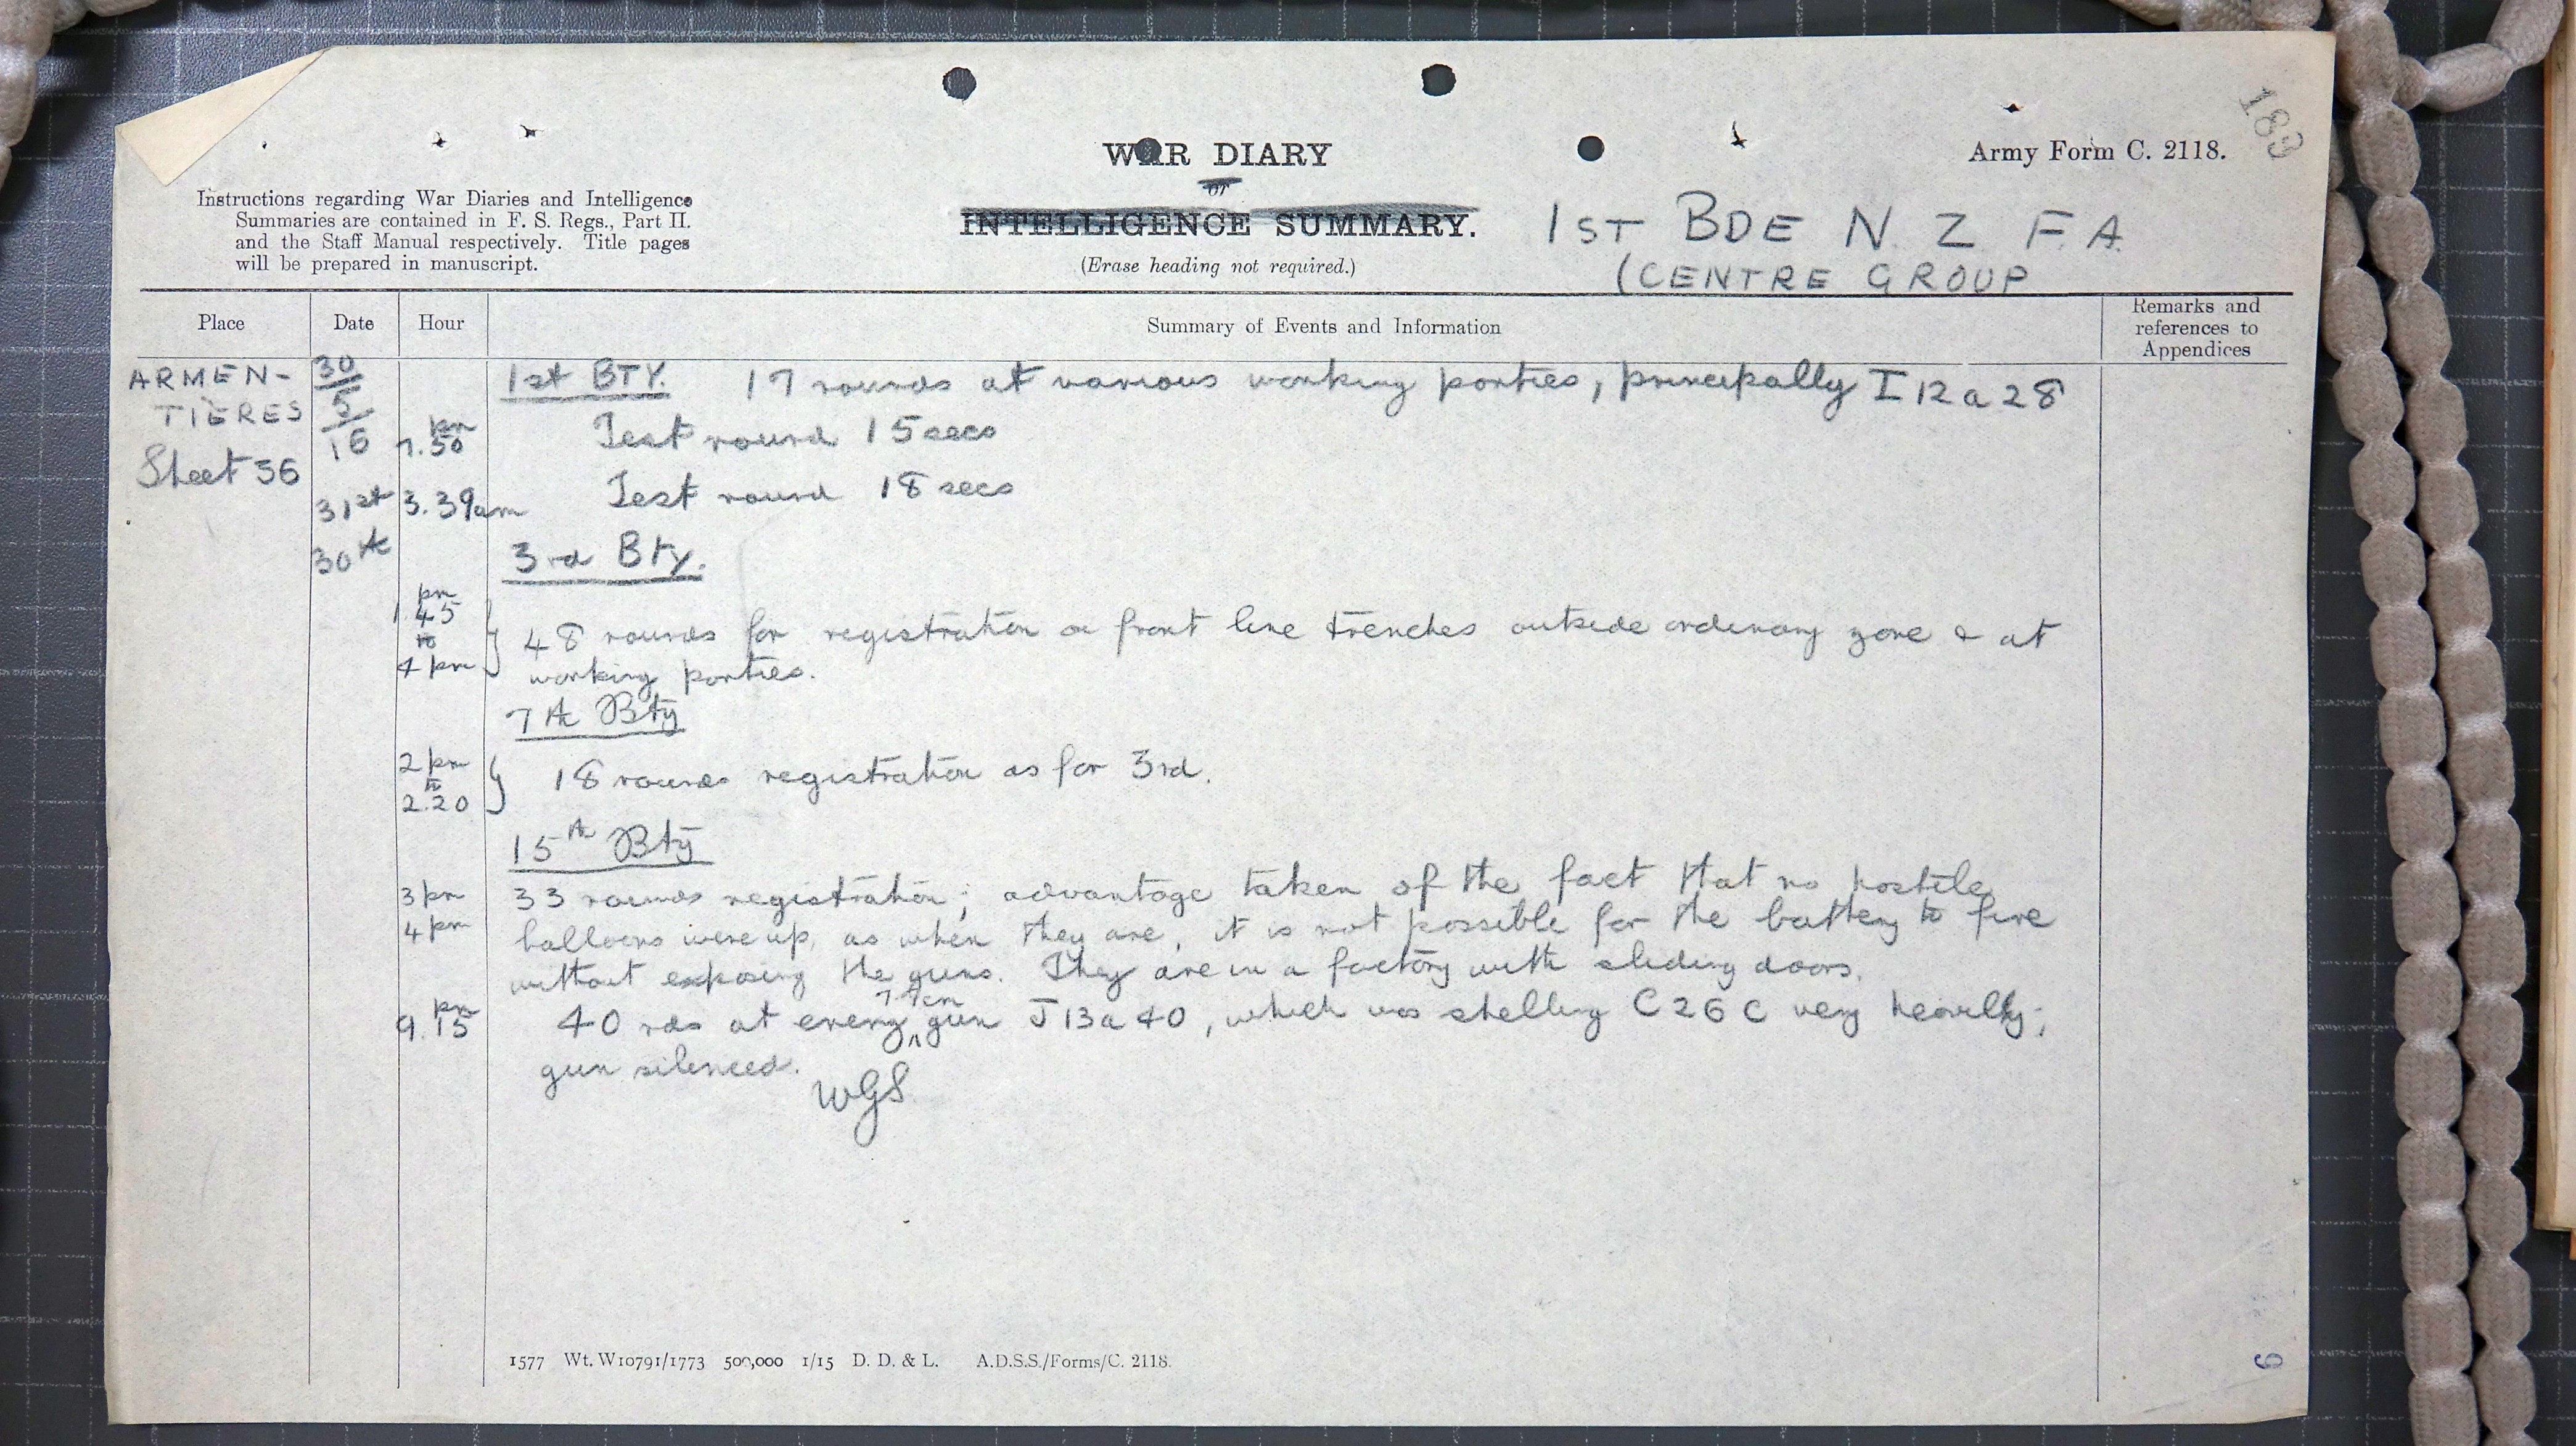 183
WAR DIARY
Army Form C. 2118.
or
INTELLIGENCE SUMMARY.
(Erase heading not required.)
Instructions regarding War Diaries and Intelligence
Summaries are contained in F. S. Regs., Part II.
and the Staff Manual respectively. Title pages
will be prepared in manuscript.
1ST BDE N. Z F.A.
(CENTRE GROUP
Place Date Hour Summary of Events and Information Remarks and references to Appendices
ARMEN- 30 1st BTY. 17 rounds at various working parties, principally I 12 a 28
TIERES 5
16 7.50 pm Test round 15 secs
Sheet 36
31st 3.39am Test round 18 secs
30th 3rd Bty.
1.45 pm
to 48 rounds for registration on front line trenches outside ordinary zone & at
4 pm working parties.
7th Bty
2 pm
to 18 rounds registration as for 3rd.
2.20
15th Bty
3 pm 33 rounds registration; advantage taken of the fact that no hostile
4 pm balloons were up, as when they are, it is not possible for the battery to fire
without exposing the guns. They are in a factory with sliding doors.
9.15 pm 40 rds at enemy 7.7cm gun J 13 a 40, which was shelling C 26 C very heavily;
gun silenced.
WGS
1577 Wt. W10791/1773 500,000 1/15 D. D. & L. A.D.S.S./Forms/C. 2118.
6